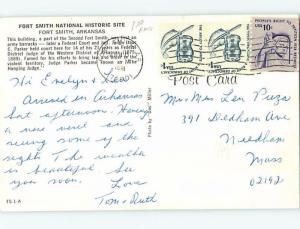 FORT SMITH NATIONAL HISTORIC SITE
FORT SMITH, ARKANSAS
This building, a part of the Second Fort Smith, was first an
army barracks — later a Federal Court and
C. Parker held court here for 14 of his 21 years as Federal
Judge of the Western District of Arkansas (1875-
1889). Famed for his efforts to bring law and order to the
violent territory, Judge Parker became known as
Hi Evelyn &
Arrived in Arkansas
Sat afternoon. Having
a nice visit and
seeing some of the
sights. The weather
is beautiful. See
you soon.
Love
Tom & Ruth
FS-1-A
Photo by Miller
1981
USA 10c
Post Card
Mr. & Mrs Len
391 Dedham Ave
Needham
Mass
02192